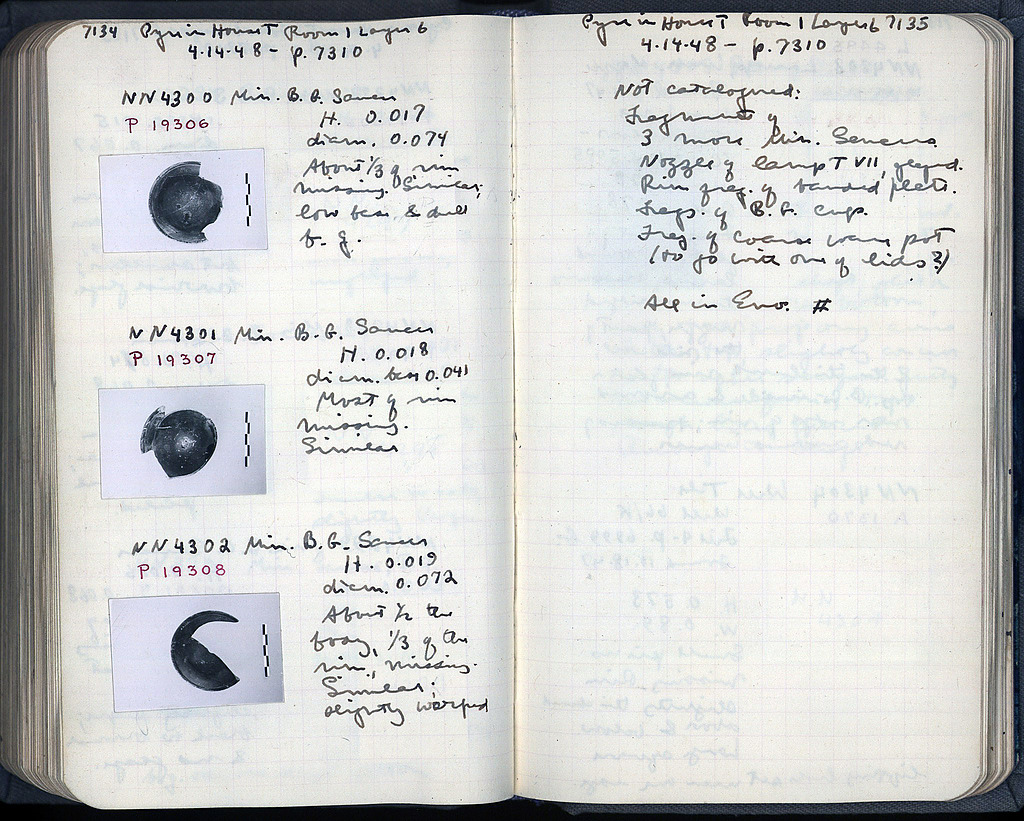 7134 Pyre in House T Room 1 Layer 6
4.14.48 - p. 7310
NN4300 Min. B.G. Saucer
P 19306
H. 0.017
diam. 0.074
About 1/3 of rim
missing. Similar;
low base, & dull
b. g.
NN4301 Min. B.G. Saucer
P 19307
H. 0.018
diam. base 0.041
Most of rim
missing.
Similar
NN4302 Min. B.G. Saucer
P 19308
H. 0.019
diam. 0.072
About 1/2 the
body, 1/3 of the
rim, missing.
Similar;
slightly warped
Pyre in House T Room 1 Layer 6 7135
4.14.48 - p. 7310
Not catalogued:
Fragments of
3 more Min. Saucers
Nozzle of lamp T VII, glazed.
Rim frag. of banded plate.
Frags. of B.G. cup.
Frag. of coarse ware pot
(to go with one of lids?)
All in Env. #